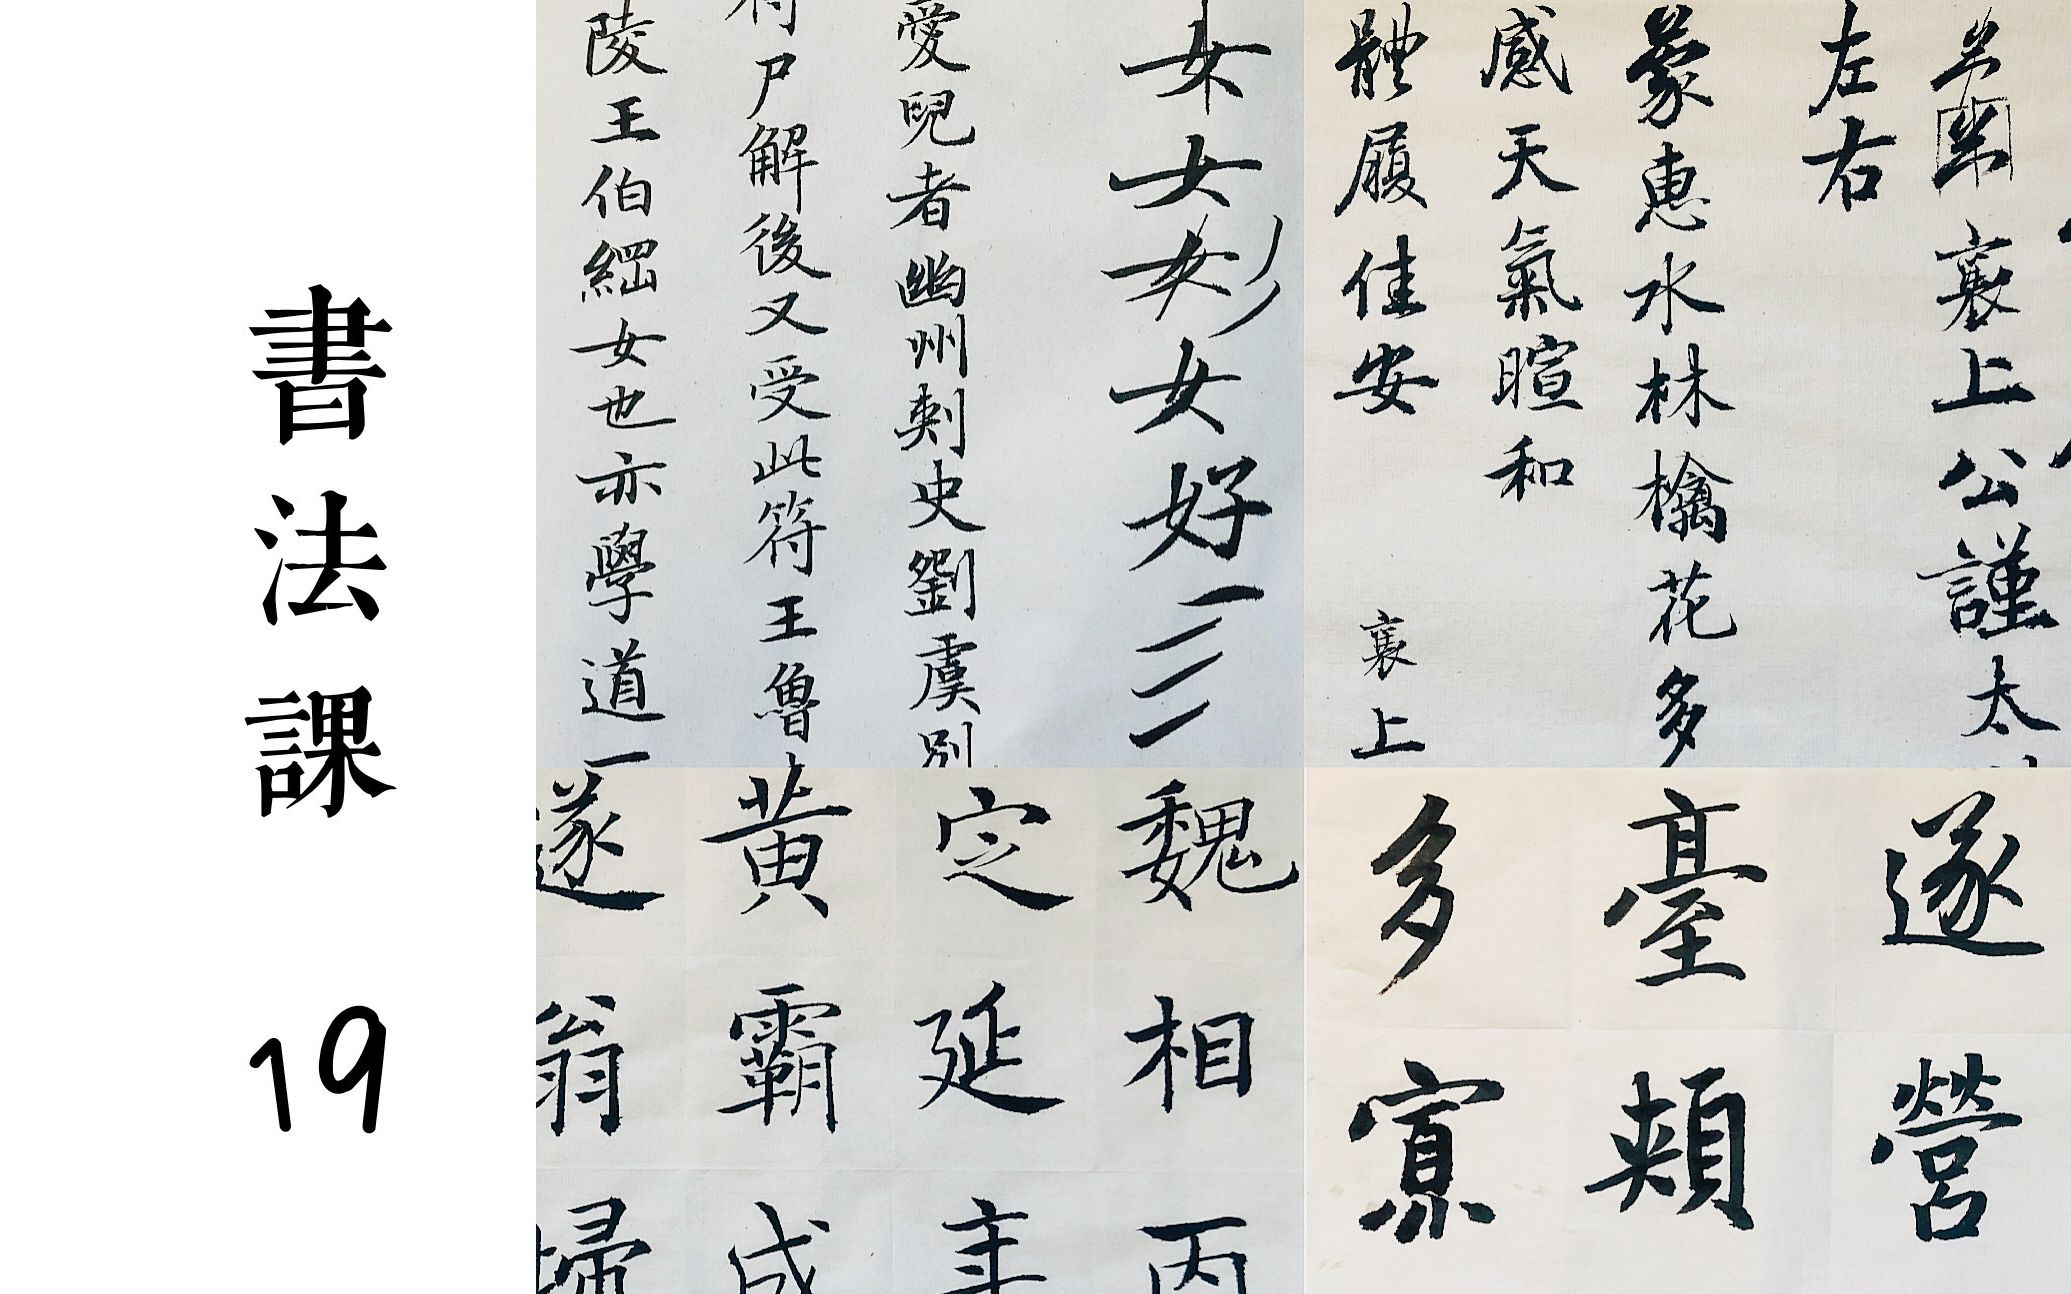 書法課
19
女女女女好一二三
愛兒者幽州刺史劉虞別
符尸解後又受此符王魯
陵王伯綱女也亦學道一
襄上公謹太
左右
蒙惠水林檎花多
感天氣暄和
體履佳安
襄上
魏相丙
定延年
黃霸成
遂翁歸
遂營
臺頰
多寡